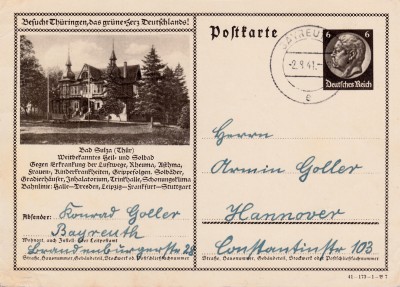 Besucht Thüringen, das grüne Herz Deutschlands!
Bad Sulza (Thür)
Weitbekanntes Heil- und Solbad
Gegen Erkrankung der Luftwege, Rheuma, Asthma,
Frauen-, Kinderkrankheiten, Grippefolgen. Solbäder,
Gradierhäuser, Inhalatorium, Trinkhalle, Schonungsklima
Bahnlinie: Halle-Dresden, Leipzig-Frankfurt-Stuttgart
Absender: Konrad Goller
Bayreuth
Wohnort, auch Zustell- od. Leitpostamt
Brandenburgerstr 28
Straße, Hausnummer, Gebäudeteil, Stockwerk od. Postschließfachnummer
Postkarte
BAYREUTH
-2.9.41.-
c
6 6
Deutsches Reich
Herrn
Armin Goller
Hannover
Constantinstr 103
Straße, Hausnummer, Gebäudeteil, Stockwerk od. Postschließfachnummer
41-173-1-B 7